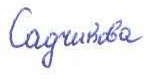 Садчикова